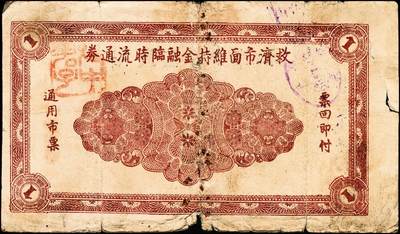 1
1
救濟市面維持金融臨時流通券
通用市票
票回即付
1
1